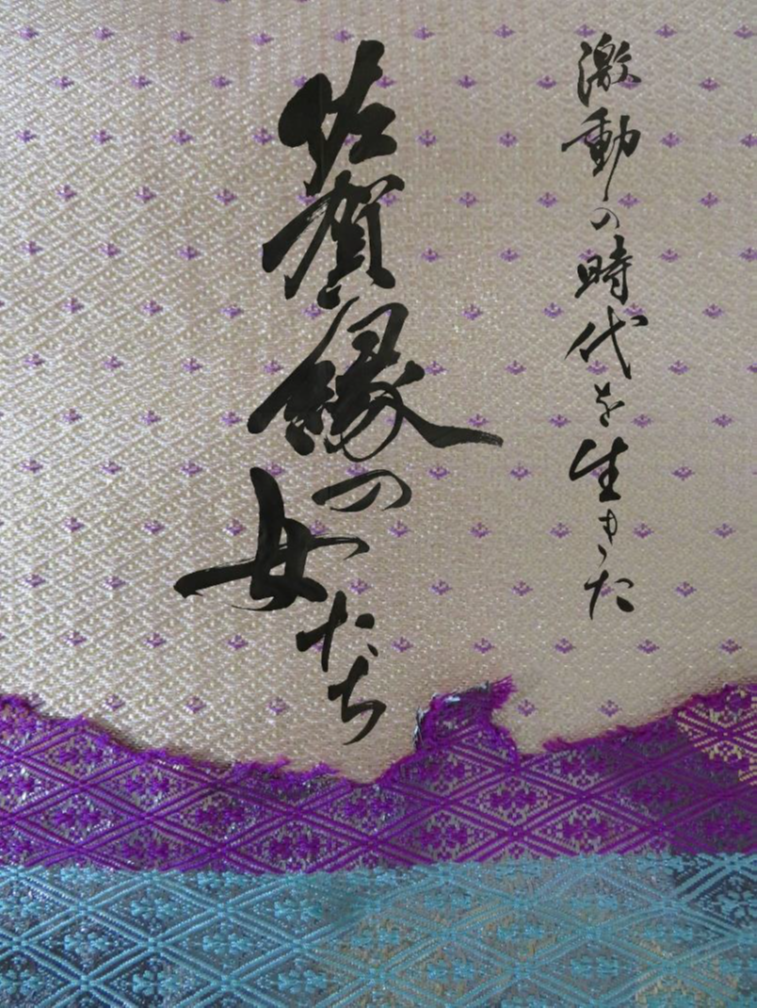 激動の時代を生きた
佐賀縁の女たち